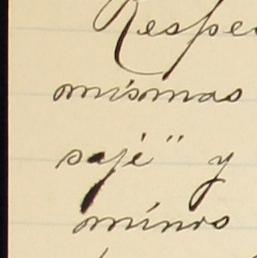 Respe
mismas
sajé" y
minos